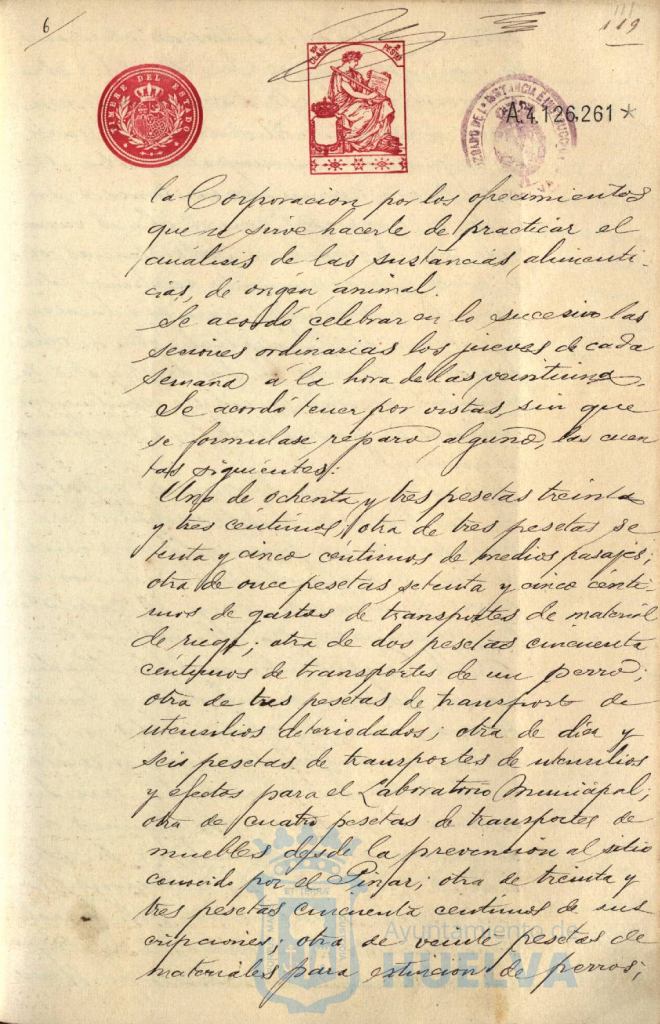 6
119
TIMBRE DEL ESTADO
10ª CLASE
2 PESETAS
A.4.126.261*
la Corporacion por los ofrecimientos
que se sirve hacerle de practicar el
análisis de las sustancias, alimenti-
cias, de origen animal.
Se acordó celebrar en lo sucesivo las
sesiones ordinarias los jueves de cada
semana á la hora de las veintiuna.
Se acordó tener por vistas, sin que
se formulase reparo alguno, las cuen
tas siguientes:
Una de ochenta y tres pesetas treinta
y tres céntimos; otra de tres pesetas se
tenta y cinco centimos de medios pasajes;
otra de once pesetas setenta y cinco cénti-
mos de gastos de transportes de material
de riego; otra de dos pesetas cincuenta
céntimos de transportes de un perro;
otra de tres pesetas de transporte de
utensilios deteriodados; otra de diez y
seis pesetas de transportes de utensilios
y efectos para el Laboratorio Municipal;
otra de cuatro pesetas de transportes de
muebles desde la prevención al sitio
conocido por el Pinar; otra de treinta y
tres pesetas cincuenta centimos de sus
cripciones; otra de veinte pesetas de
materiales para estincion de perros;
Ayuntamiento de
HUELVA